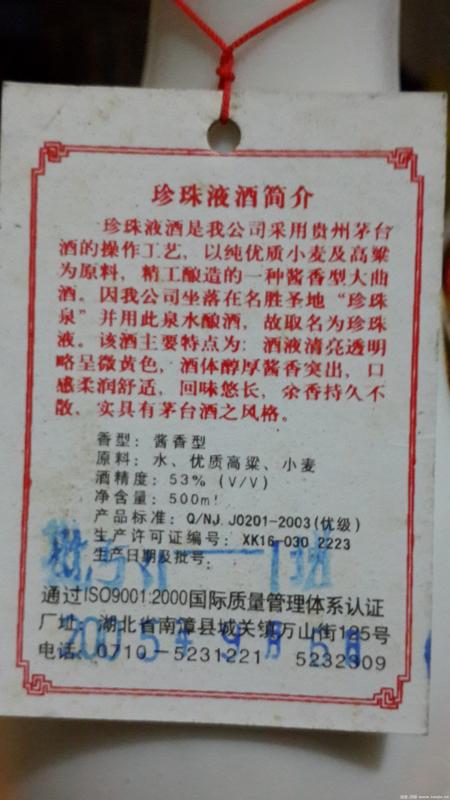 珍珠液酒简介
珍珠液酒是我公司采用贵州茅台
酒的操作工艺，以纯优质小麦及高粱
为原料，精工酿造的一种酱香型大曲
酒。因我公司坐落在名胜圣地“珍珠
泉”并用此泉水酿酒，故取名为珍珠
液。该酒主要特点为：酒液清亮透明
略呈微黄色，酒体醇厚酱香突出，口
感柔润舒适，回味悠长，余香持久不
散，实具有茅台酒之风格。
香型：酱香型
原料：水、优质高粱、小麦
酒精度：53%（V/V）
净含量：500ml
产品标准：Q/NJ. J0201-2003(优级)
生产许可证编号：XK16-030 2223
生产日期及批号：
通过ISO9001:2000国际质量管理体系认证
厂址：湖北省南漳县城关镇万山街125号
2005年9月5日
电话：0710-5231221 5232309